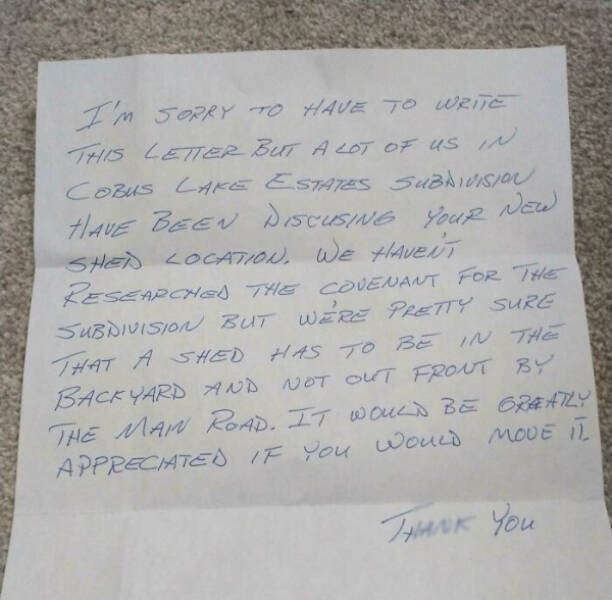 I'M SORRY TO HAVE TO WRITE
THIS LETTER BUT A LOT OF US IN
COBUS LAKE ESTATES SUBDIVISION
HAVE BEEN DISCUSING YOUR NEW
SHED LOCATION. WE HAVEN'T
RESEARCHED THE COVENANT FOR THE
SUBDIVISION BUT WE'RE PRETTY SURE
THAT A SHED HAS TO BE IN THE
BACKYARD AND NOT OUT FRONT BY
THE MAIN ROAD. IT WOULD BE GREATLY
APPRECIATED IF YOU WOULD MOVE IT.
THANK YOU